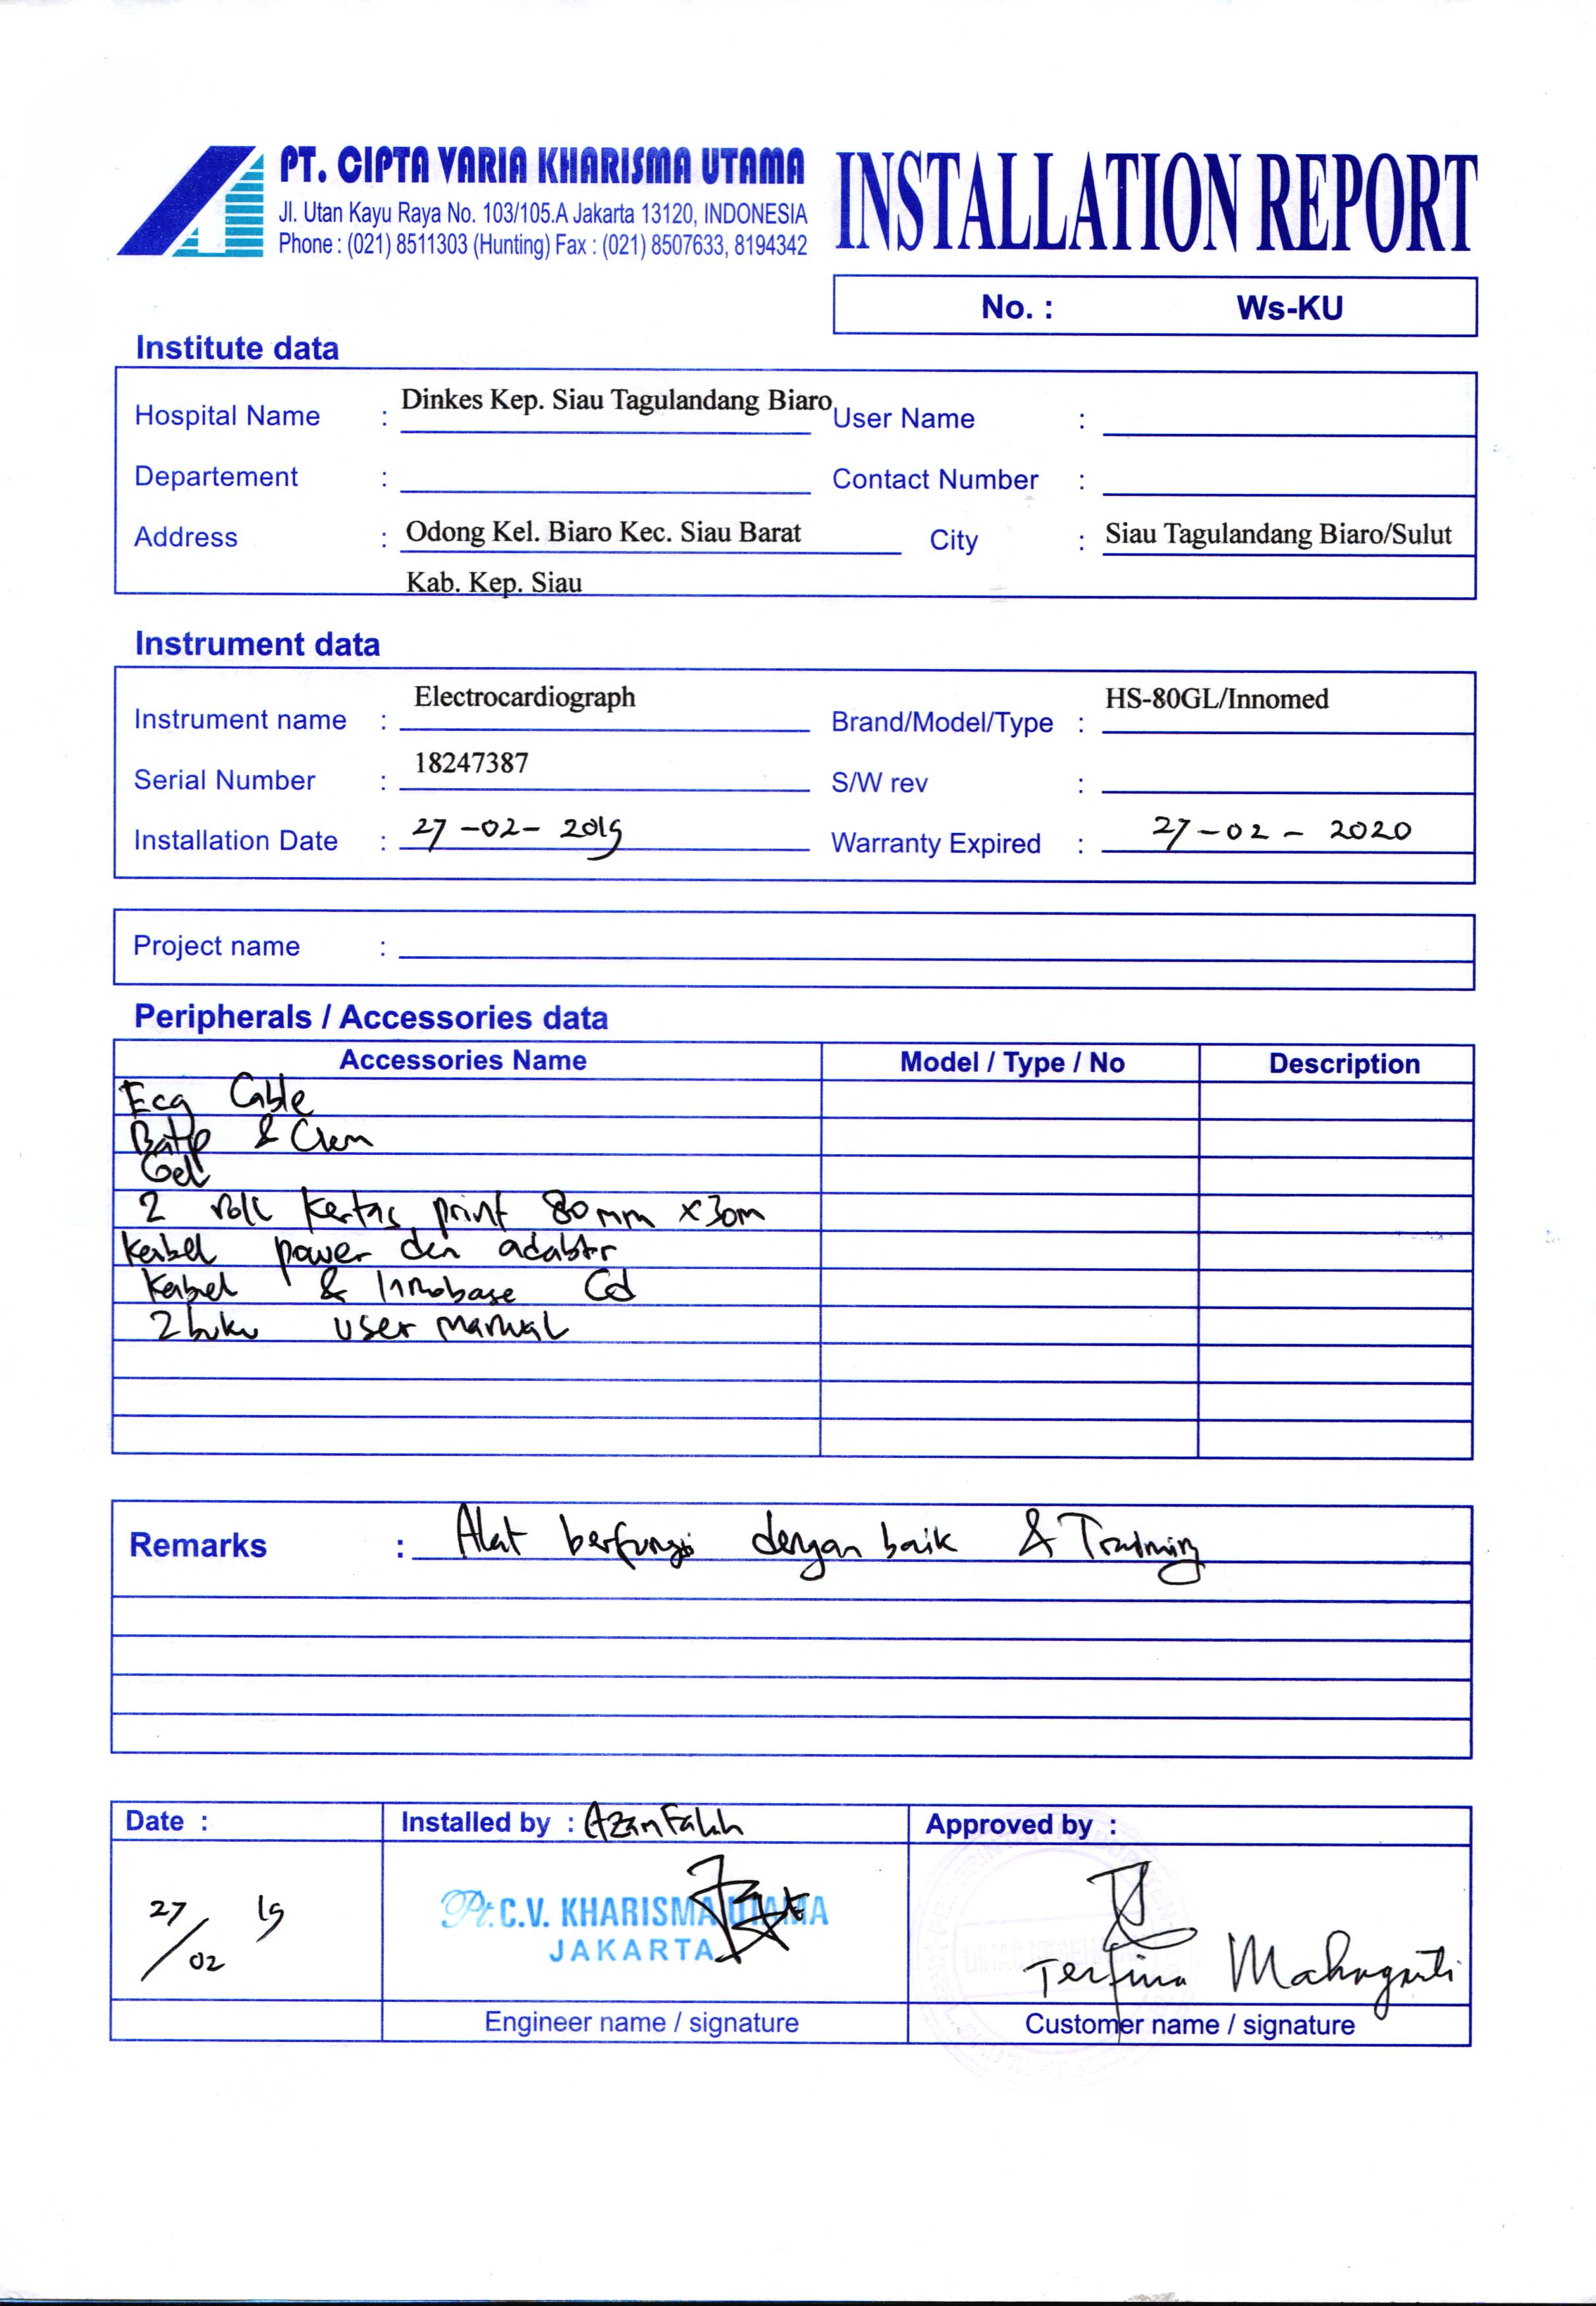 PT. CIPTA VARIA KHARISMA UTAMA
Jl. Utan Kayu Raya No. 103/105.A Jakarta 13120, INDONESIA
Phone : (021) 8511303 (Hunting) Fax : (021) 8507633, 8194342
INSTALLATION REPORT
No. : Ws-KU
Institute data
Hospital Name : Dinkes Kep. Siau Tagulandang Biaro User Name :
Departement : Contact Number :
Address : Odong Kel. Biaro Kec. Siau Barat City : Siau Tagulandang Biaro/Sulut
Kab. Kep. Siau
Instrument data
Instrument name : Electrocardiograph Brand/Model/Type : HS-80GL/Innomed
Serial Number : 18247387 S/W rev :
Installation Date : 27-02-2019 Warranty Expired : 27-02-2020
Project name :
Peripherals / Accessories data
Accessories Name Model / Type / No Description
Ecg Cable
&
Gel
2 roll kertas print 80mm x30m
Kabel power dan
Kabel & Innobase Cd
2 buku user manual
Remarks : Alat berfungsi dengan baik & Training
Date : Installed by : Azan Falih Approved by :
27/02 19
Pt. C.V. KHARISMA UTAMA
JAKARTA
Engineer name / signature Customer name / signature